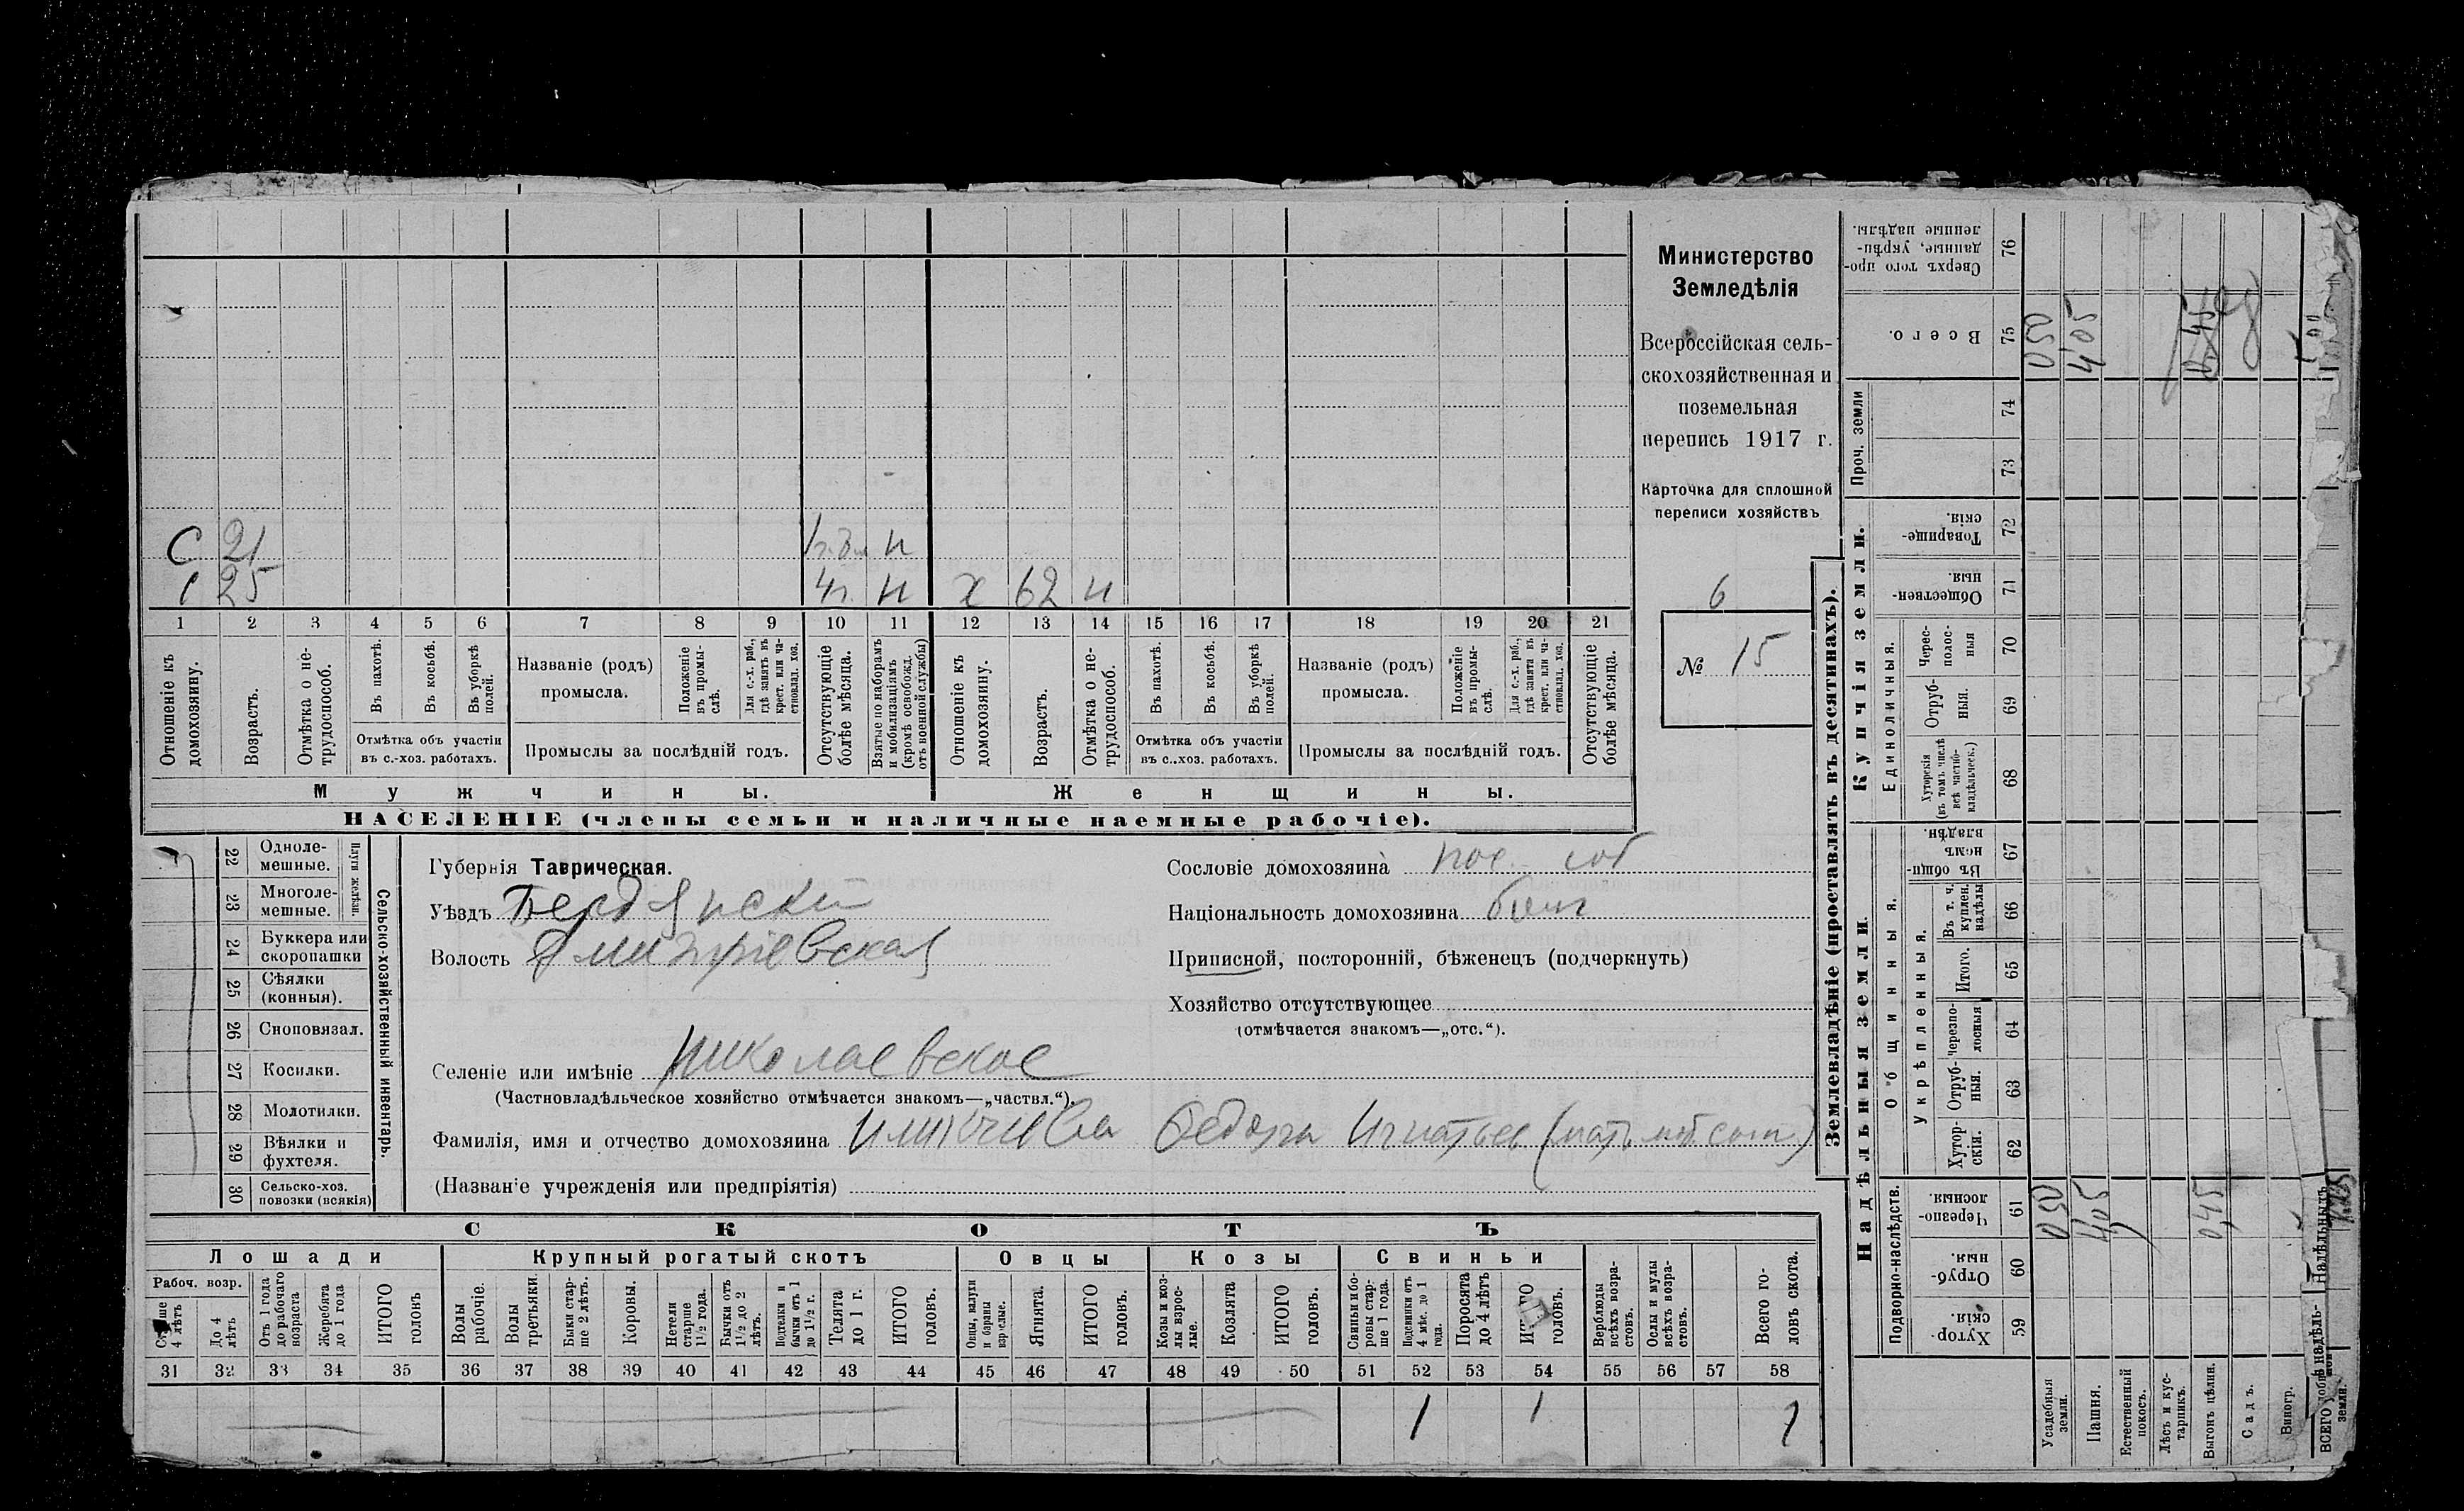 С 21 н
С 25 4 г. н х 62 н
1 2 3 4 5 6 7 8 9 10 11 12 13 14 15 16 17 18 19 20 21
Отношеніе къ домохозяину.
Возрастъ.
Отмѣтка о не-трудоспособ.
Въ пахотѣ.
Въ косьбѣ.
Въ уборкѣ полей.
Отмѣтка объ участіи
въ с.-хоз. работахъ.
Названіе (родъ)
промысла.
Положеніе въ промы-слѣ.
Для с.-х. раб., гдѣ занятъ въ крест. или ча-стновлад. хоз.
Промыслы за послѣдній годъ.
Отсутствующіе болѣе мѣсяца.
Взятые по наборамъ и мобилизаціямъ (кромѣ освобожд. отъ военной службы)
Отношеніе къ домохозяину.
Возрастъ.
Отмѣтка о не-трудоспособ.
Въ пахотѣ.
Въ косьбѣ.
Въ уборкѣ полей.
Отмѣтка объ участіи
въ с..хоз. работахъ.
Названіе (родъ)
промысла.
Положеніе въ промы-слѣ.
Для с.-х. раб., гдѣ занята въ крест. или ча-стновлад. хоз.
Промыслы за послѣдній годъ.
Отсутствующіе болѣе мѣсяца.
Мужчины. Женщины.
НАСЕЛЕНІЕ (члены семьи и наличные наемные рабочіе).
Министерство
Земледѣлія
Всероссійская сель-
скохозяйственная и
поземельная
перепись 1917 г.
Карточка для сплошной
переписи хозяйствъ
6
№ 15
22 Одноле-мешные.
23 Многоле-мешные.
Плуги желѣзн.
24 Буккера или скоропашки
25 Сѣялки (конныя).
26 Сноповязал.
27 Косилки.
28 Молотилки.
29 Вѣялки и фухтеля.
30 Сельско-хоз. повозки (всякія)
Сельско-хозяйственный инвентарь.
Губернія Таврическая.
Уѣздъ Бердянскій
Волость Дмитріевская
Селеніе или имѣніе Николаевское
(Частновладѣльческое хозяйство отмѣчается знакомъ—„частвл.“).
Фамилія, имя и отчество домохозяина Федора Игнатьев
(Названіе учрежденія или предпріятія)
Сословіе домохозяина пос. соб
Національность домохозяина болг
Приписной, посторонній, бѣженецъ (подчеркнуть)
Хозяйство отсутствующее
(отмѣчается знакомъ—„отс.“).
СКОТЪ
Лошади Крупный рогатый скотъ Овцы Козы Свиньи
Рабоч. возр.
Старше 4 лѣтъ
До 4 лѣтъ
Отъ 1 года до рабочаго возраста
Жеребята до 1 года
ИТОГО головъ
Волы рабочіе.
Волы третьяки.
Быки стар-ше 2 лѣтъ.
Коровы.
Нетели старше 1½ года.
Бычки отъ 1½ до 2 лѣтъ.
Подтелки и бычки отъ 1 до 1½ г.
Телята до 1 г.
ИТОГО головъ.
Овцы, валухи и бараны взрослые.
Ягнята.
ИТОГО головъ.
Козы и коз-лы взрос-лые.
Козлята
ИТОГО головъ.
Свиньи и бо-ровы стар-ше 1 года.
Подсвинки отъ 4 мѣс. до 1 года.
Поросята до 4 лѣтъ
ИТОГО головъ.
Верблюды всѣхъ возра-стовъ.
Ослы и мулы всѣхъ возра-стовъ.
Всего го-ловъ скота.
31 32 33 34 35 36 37 38 39 40 41 42 43 44 45 46 47 48 49 50 51 52 53 54 55 56 57 58
1 1 1
Землевладѣніе (проставлять въ десятинахъ).
Надѣльныя земли. Купчія земли.
Проч. земли
Подворно-наслѣдств.
Общинныя.
Укрѣпленныя.
Единоличныя.
Хутор-скія. 59
Отруб-ныя. 60
Черезпо-лосныя. 61
Хутор-скія. 62
Отруб-ныя. 63
Черезпо-лосныя 64
Итого. 65
Въ т. ч. куплен. надѣлы 66
Въ общи-номъ владѣн. 67
Хуторскія (въ томъ числѣ всѣ частно-владѣльческ.) 68
Отруб-ныя. 69
Черес-полос-ныя 70
Обществен-ныя. 71
Товарище-скія. 72
73
74
Всего. 75
Сверхъ того про-данные, укрѣп-ленные надѣлы. 76
Усадебныя земли. 0,50 0,50
Пашня. 4,05 4,05
Естественный покосъ.
Лѣсъ и кус-тарникъ.
Выгонъ цѣлин. 0,45 0,45
Садъ.
Виногр.
ВСЕГО удобн. земли.
Надѣльныхъ